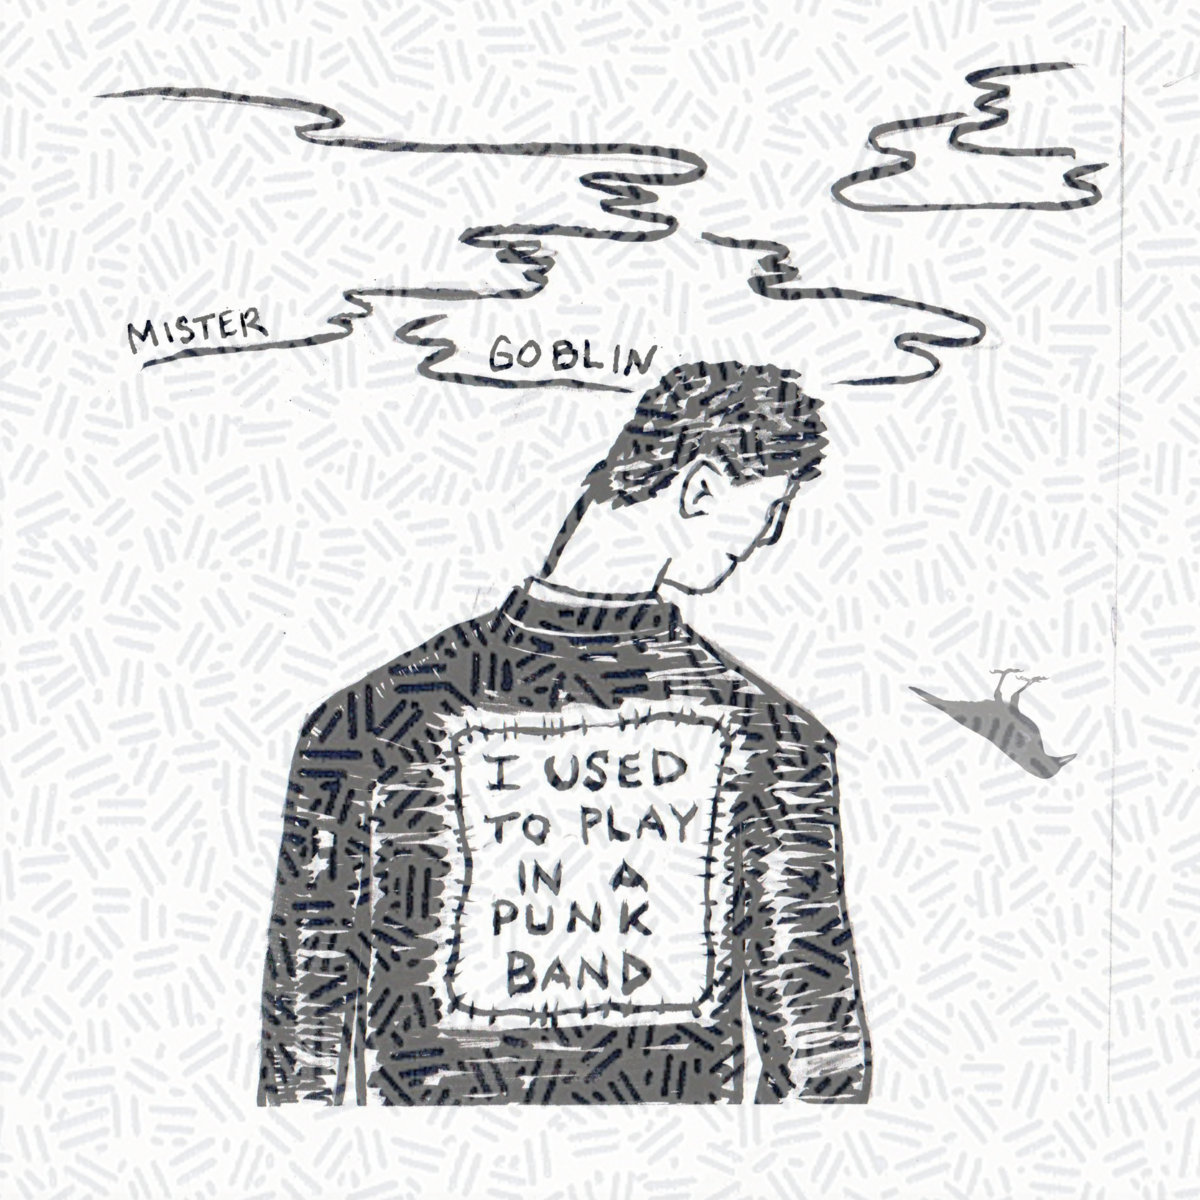 MISTER
GOBLIN
I USED
TO PLAY
IN A
PUNK
BAND